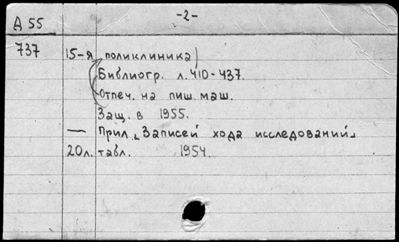 -2-
Д 55
737 15-я поликлиника)
Библиогр. л. 410-437.
Отпеч. на пиш. маш.
Защ. в 1955.
— Прил. „Записей хода исследований"
20л. табл. 1954.